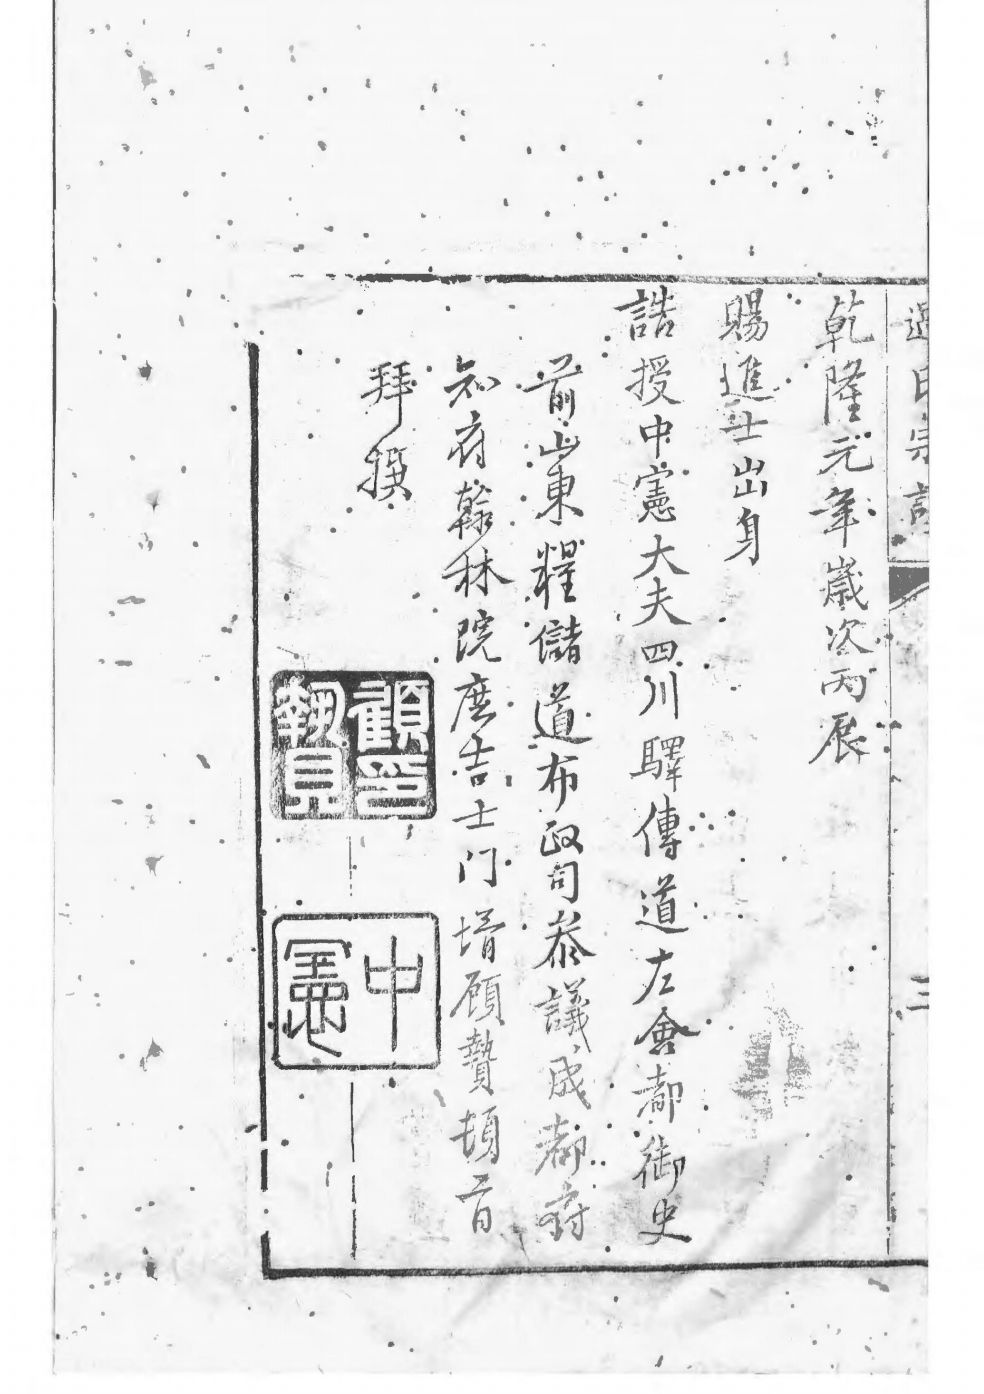 乾隆元年歲次丙辰
賜進士出身
誥授中憲大夫四川驛傳道左僉都御史
前山東糧儲道布政司叅議成都府
知府翰林院庶吉士門壻顧贄頓首
拜撰
顧贄之印
中憲
三